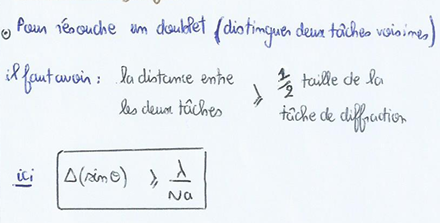 ⊙ Pour résoudre un doublet (distinguer deux tâches voisines)
il faut avoir : la distance entre les deux tâches ≥ 1/2 taille de la tâche de diffraction
ici Δ(sinθ) ≥ λ/Na